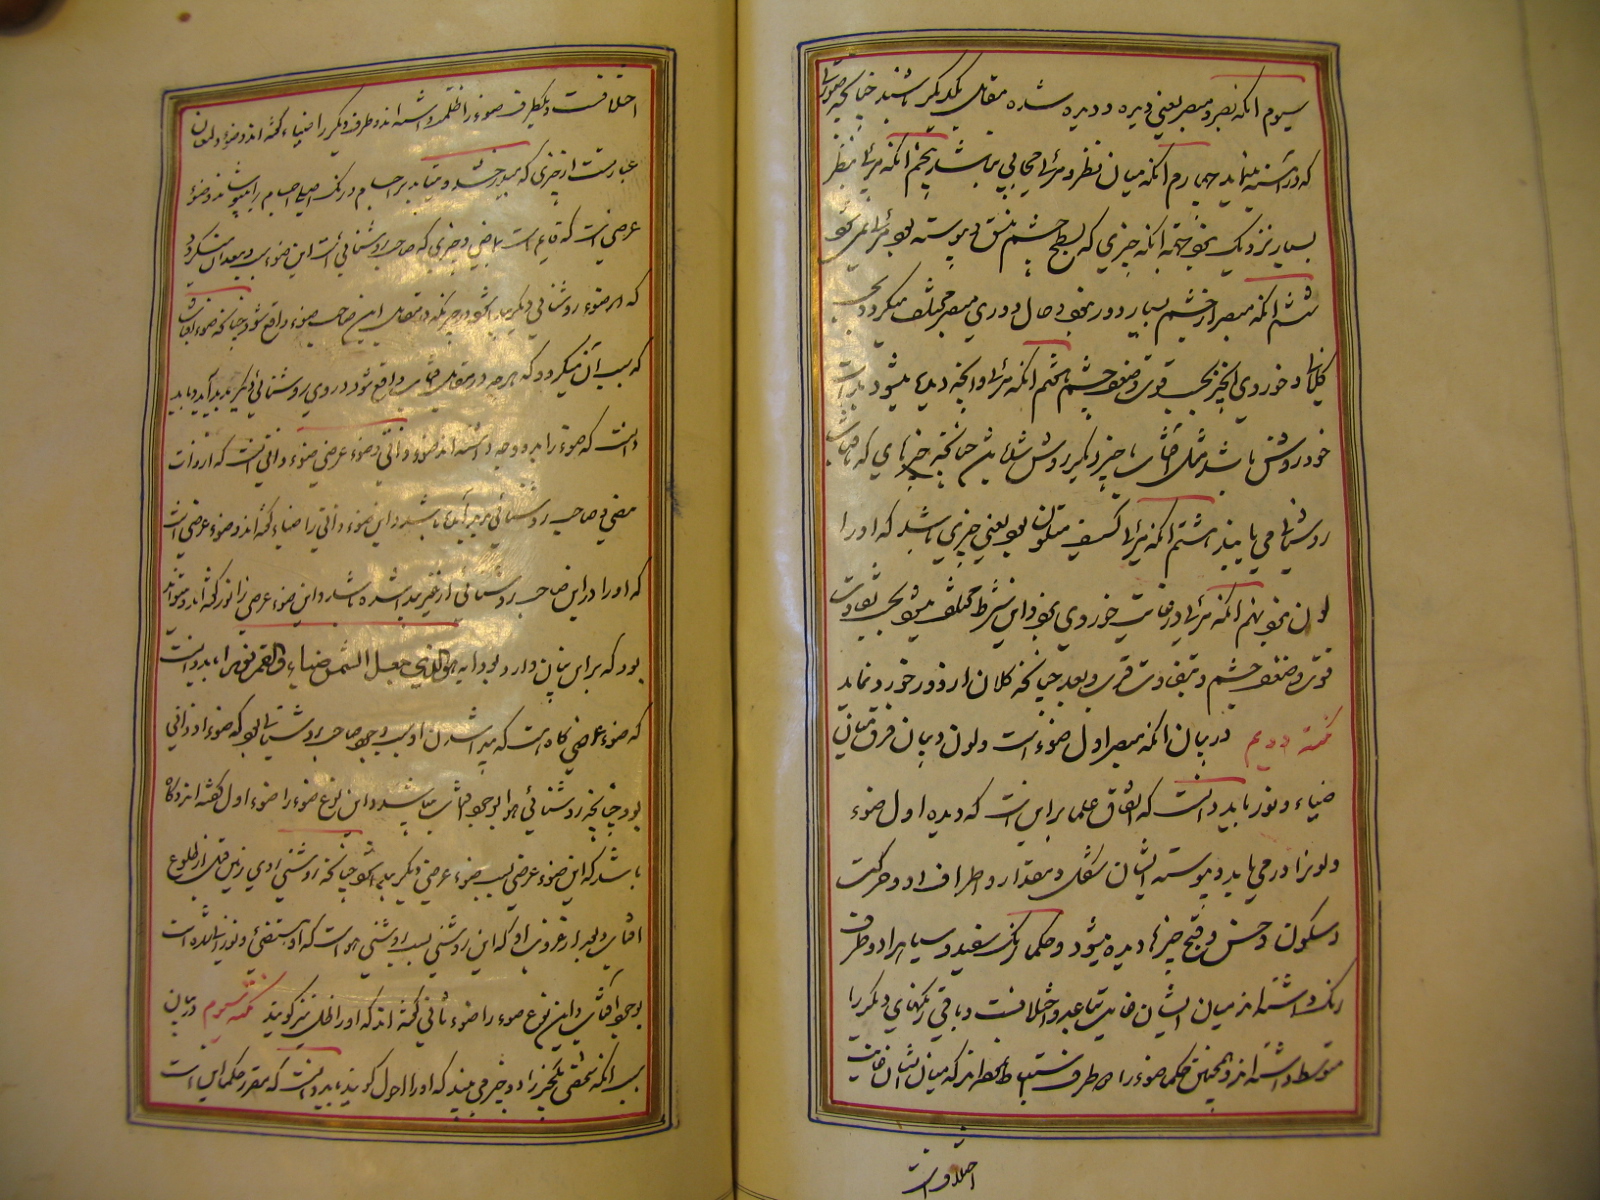 سیوم انکه بصر و مبصر یعنی دیده و دیده شده مقابل یکدیگر باشند چنانچه صورتی
که در آئینه میماند چهارم انکه میان نظر و مرئی حجابی نباشد پنجم انکه مرئی بنظر
بسیار نزدیک نبود چه آنکه چیزی که بسطح چشم ملتصق و پیوسته بود مرئی نمی شود
ششم انکه مبصر از چشم بسیار دور نبود و حال دوری مبصر مختلف میگردد بحسب
کلانی و خوردی آنچیز و بحسب قوی و ضعف چشم هفتم انکه مرئی و آنچه دیده میشود بذات
خود روشن باشد مثل آفتاب یا چیز دیگر روشن شود بدین چنانچه چیزهای که بآفتاب
روشنائی می یابند هشتم انکه مرئی کثیف متلون بود یعنی چیزی باشد که او را
لون بود نهم انکه مرئی در غایت خوردی نبود و این شرط مختلف میشود بحسب تفاوت
قوی و ضعف چشم و بتفاوت قرب و بعد چنانچه کلان از دور خورد نماید
نکته دویم در بیان انکه مبصر اول ضوء است و لون و بیان فرق میان
ضیاء و نور باید دانست که اتفاق علما بر این است که دیده اول ضوء
و لونرا در می یابد و بوسیله ایشان شکل و مقدار و اطراف او و حرکت
و سکون و حسن و قبح چیزها دیده میشود و حکما رنگ سفید و سیاه را دو طرف
رنگ داشته اند میان ایشان غایت تباعد و اختلافست و باقی رنگهای دیگر را
متوسط داشته اند و همچنین حکما ضوء را دو طرف استنباط نموده اند که میان ایشان غایت
اختلافست
اختلافست و یکطرف ضوء را ظلمت داشته اند و طرف دیگر را ضیاء گفته اند و ضوء و لون
عبارتست از چیزی که میدرخشد و میتابد بر اجسام و رنگ اصلی اجسام را میپوشاند و ضوء
عرضی است که قایم است بمضی و چیزی که صاحب روشنائی است این ضوء سبب و معد آن میگردد
که از ضوء روشنائی دیگر پیدا شود در چیزیکه در مقابل این صاحب ضوء واقع شود چنانچه ضوء آفتاب
که سبب آن میگردد که هرچه در مقابل آفتاب واقع شود در وی روشنائی دیگر پدید آید و باید
دانست که ضوء را بدو وجه داشته اند ضوء ذاتی و ضوء عرضی ضوء ذاتی آنست که از ذات
مضی و صاحب روشنائی پدید آمده باشد و این ضوء ذاتی را ضیاء گفته اند و ضوء عرضی است
که او را در این صاحب روشنائی از غیر پیدا شده باشد و این ضوء عرضی را نور گفته اند و میتواند
بود که بر این بیان وارد بود آیه هو الذی جعل الشمس ضیاء و القمر نورا و باید دانست
که ضوء عرضی گاه است که پیدا شدن او بسبب وجود صاحب روشنائی بود که ضوء او ذاتی
بود چنانچه روشنائی هوا بوجود آفتاب میباشد و این نوع ضوء را ضوء اول گفته اند و گاه
باشد که این ضوء عرضی بسبب ضوء عرضی دیگر پیدا شود چنانچه روشنی روی زمین قبل از طلوع
آفتاب و بعد از غروب او که این روشنی بسبب روشنی هوا است که او مستضئ و نورانی شده است
بوجود آفتاب و این نوع ضوء را ضوء ثانی گفته اند که او را ظل نیز گویند نکته سیوم در بیان
سبب انکه شخصی یکچیز را دو چیز می بیند که او را احول گویند باید دانست که مقرر حکما این است